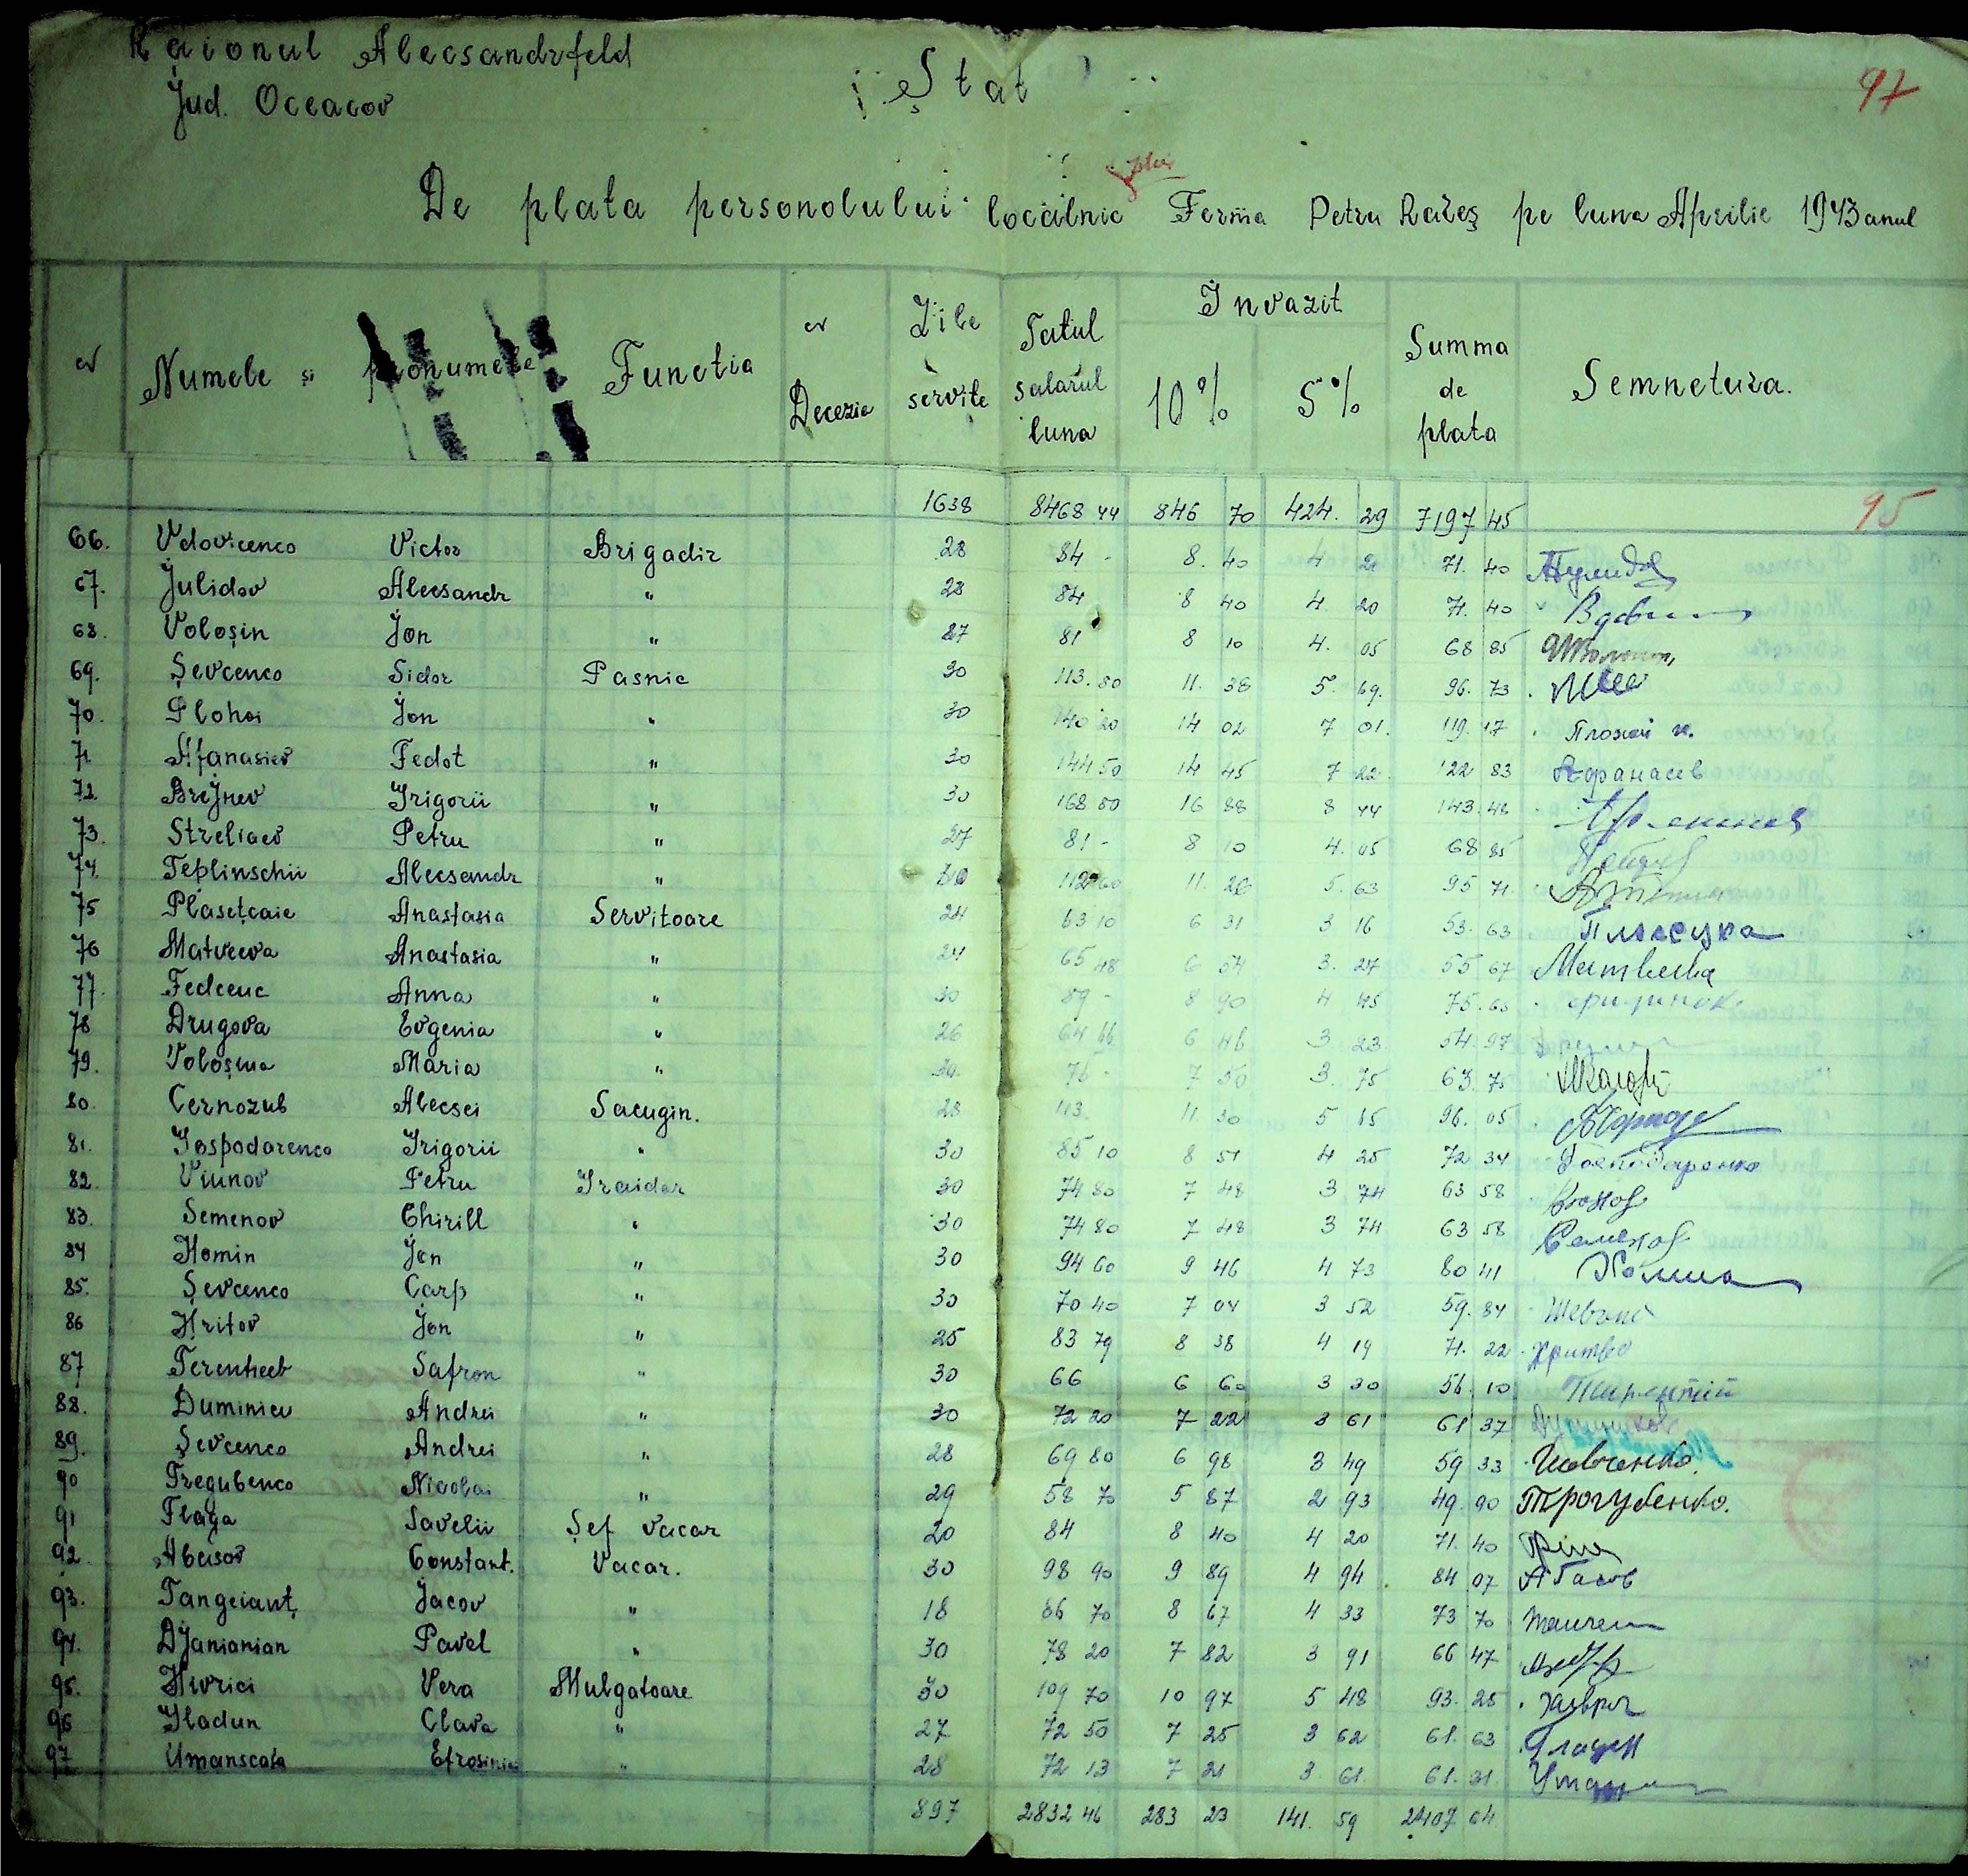 Raionul Alecsandrfeld
Jud. Oceacov
Ștat
97
De plata personolului localnic Ferma Petru Rareș pe luna Aprilie 1943 anul
Numele și pronumele Functia Decezie Zile servite Tatul salarul luna Invazit 10% 5% Summa de plata Semnetura.
1638 8468 44 846 70 424. 29 7197 45 95
66. Vdovicenco Victor Brigadir 28 84 - 8. 40 4 20 71. 40
67. Julidov Alecsandr " 28 84 8 40 4. 20 71. 40
68. Voloșin Jon " 27 81 8 10 4. 05 68 85
69. Șevcenco Sidor Pasnic 30 113. 80 11. 38 5. 69. 96. 73
70. Plohoi Jon " 30 140 20 14 02 7 01. 119. 17 Плохой и.
71. Afanasiev Fedot " 30 144 50 14 45 7 22 122 83 Афанасев
72. Brejnev Grigorii " 30 168 80 16 88 8 44 143. 48
73. Streliaev Petru " 27 81 - 8 10 4. 05 68 85
74. Teplinschii Alecsandr " 30 112 60 11. 26 5. 63 95 71.
75 Plasețcaie Anastasia Servitoare 24 63 10 6 31 3 16 53. 63
76 Matveeva Anastasia " 24 65 48 6 54 3. 27 55 67 Матвеева
77. Fedceuc Anna " 30 89 - 8 90 4 45 75. 65
78 Drugova Evgenia " 26 64 66 6 46 3 23 54. 97
79. Voloșina Maria " 30 75 - 7 50 3. 75 63. 75
80. Cernozub Alecsei Sacugin. 28 113. 11 30 5 65 96. 05
81. Gospodarenco Grigorii " 30 85 10 8 51 4 25 72 34 Господаренко
82. Viunov Petru Graidar 30 74 80 7 48 3 74 63 58
83. Semenov Chirill " 30 74 80 7 48 3 74 63 58 Семенов
84 Homin Jon " 30 94 60 9 46 4 73 80 41 Хомин
85. Șevcenco Carp " 30 70 40 7 04 3 52 59. 84
86 Hritov Jon " 25 83 79 8 38 4 19 71. 22
87 Terentieeb Safron " 30 66 6 60 3 30 56. 10
88. Duminicu Andrei " 30 72 20 7 22 3 61 61 37
89. Șevcenco Andrei " 28 69 80 6 98 3 49 59 33 Шевченко.
90 Tregubenco Nicolai " 29 58 70 5 87 2 93 49. 90 Трогубенко.
91 Flaga Savelii Șef vacar 20 84 8 40 4 20 71. 40
92. Abasov Constant. Vacar. 30 98 90 9 89 4 94 84 07 Абасов
93. Tangeianț Jacov " 18 86 70 8 67 4 33 73 70
94. Djanianian Pavel " 30 78 20 7 82 3 91 66 47
95. Hivrici Vera Mulgatoare 30 109 70 10 97 5 48 93. 25
96 Gladun Clava " 27 72 50 7 25 3 62 61. 63
97 Umanscaia Efrosinia " 28 72 13 7 21 3 61. 61. 31.
897 2832 46 283 23 141. 59 2407 64